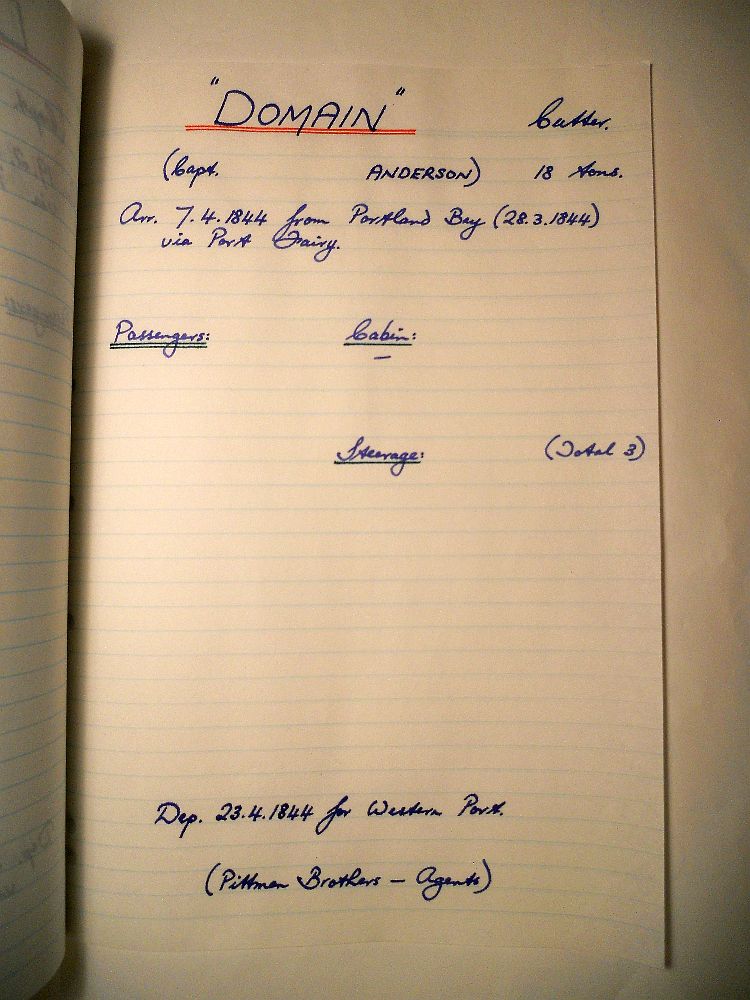 "DOMAIN" Cutter.
(Capt. ANDERSON) 18 tons.
Arr. 7.4.1844 from Portland Bay (28.3.1844)
via Port Fairy.
Passengers: Cabin:
—
Steerage: (Total 3)
Dep. 23.4.1844 for Western Port.
(Pittman Brothers — Agents)